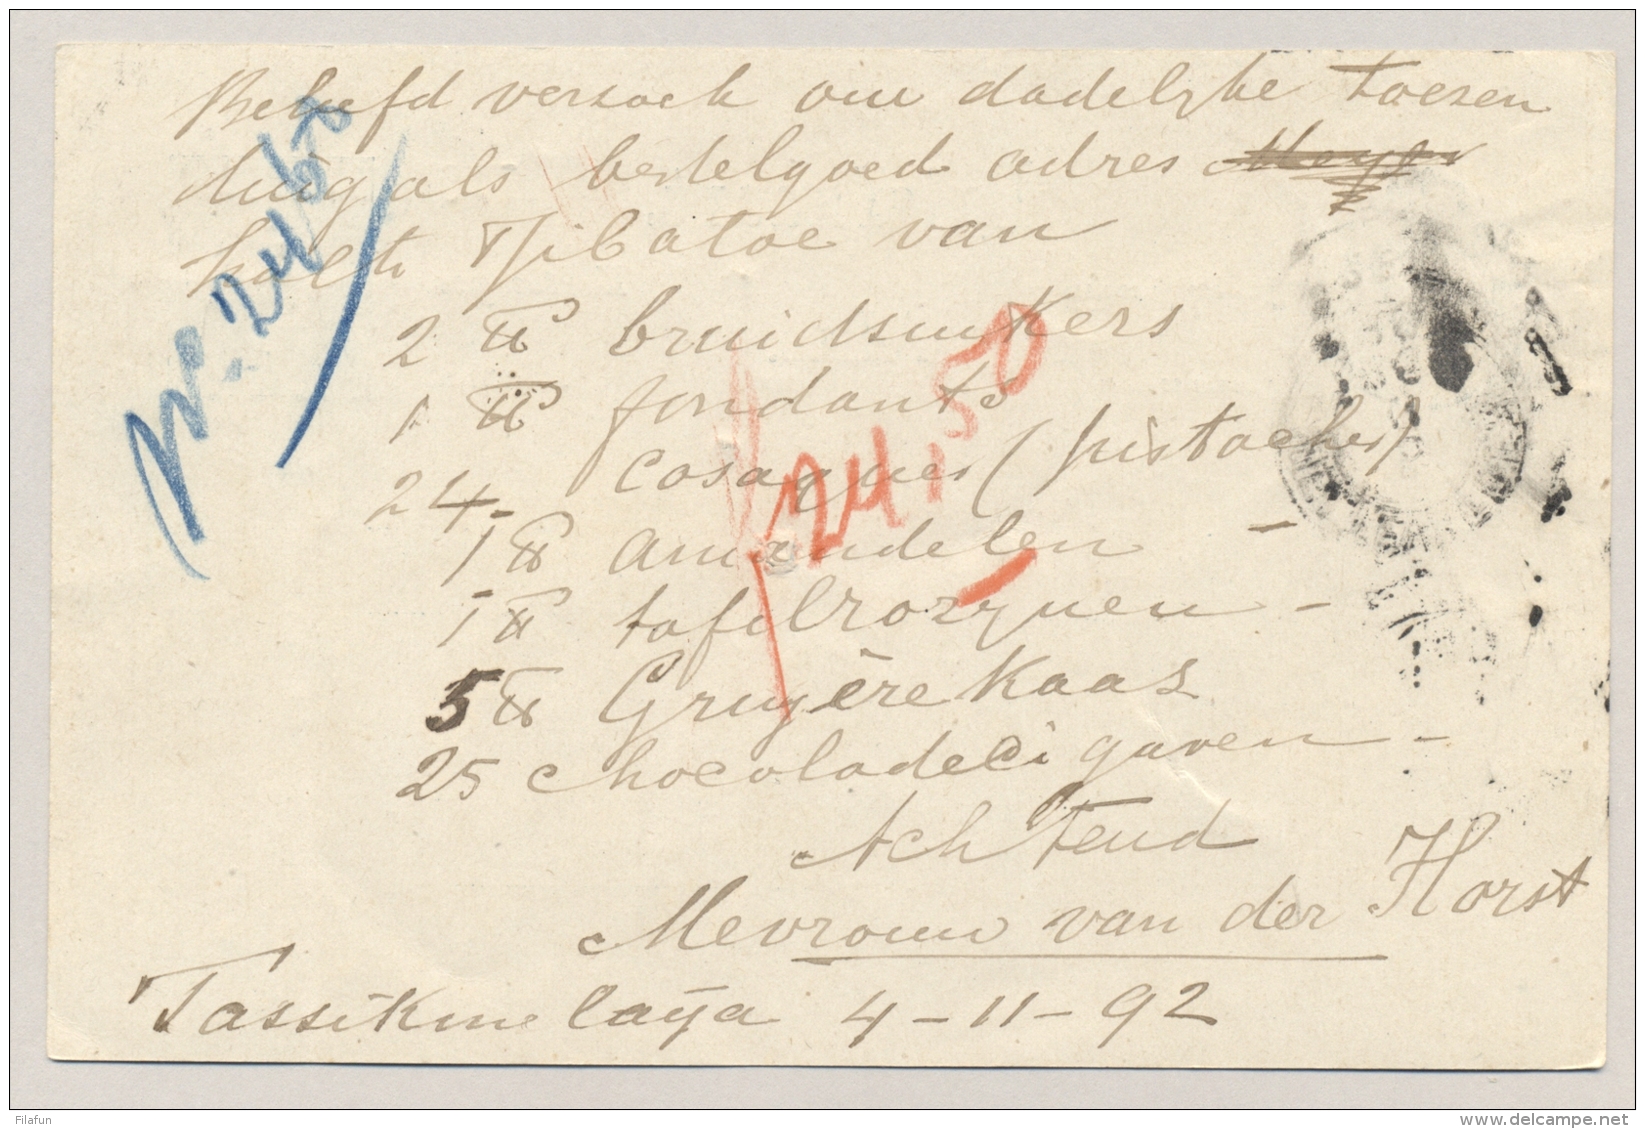 Beleefd verzoek om dadelyke toezen
ding als bestelgoed adres
halte Tjibatoe van
2 ℔ bruidsuikers
1 ℔ fondants
24 cosaques (pistaches)
1 ℔ amandelen -
1 ℔ tafelrozynen -
5 ℔ Gruyère Kaas
25 chocoladecigaren -
Achtend
Mevrouw van der Horst
Tassikmelaya 4-11-92
24,50
Filafun
www.delcampe.net